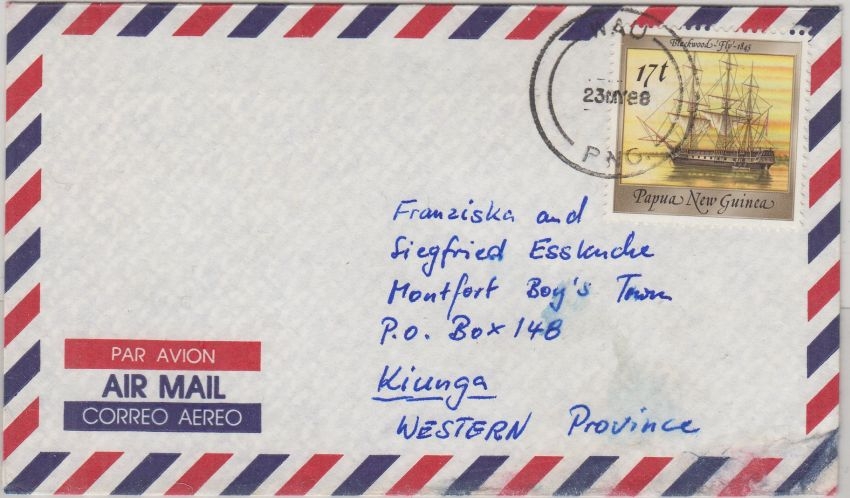 WAU
23MY88
PNG
Blackwood-Fly-1845
17t
Papua New Guinea
Franziska and
Siegfried Esskuche
Montfort Boy's Town
P.O. Box 148
Kiunga
WESTERN Province
PAR AVION
AIR MAIL
CORREO AEREO